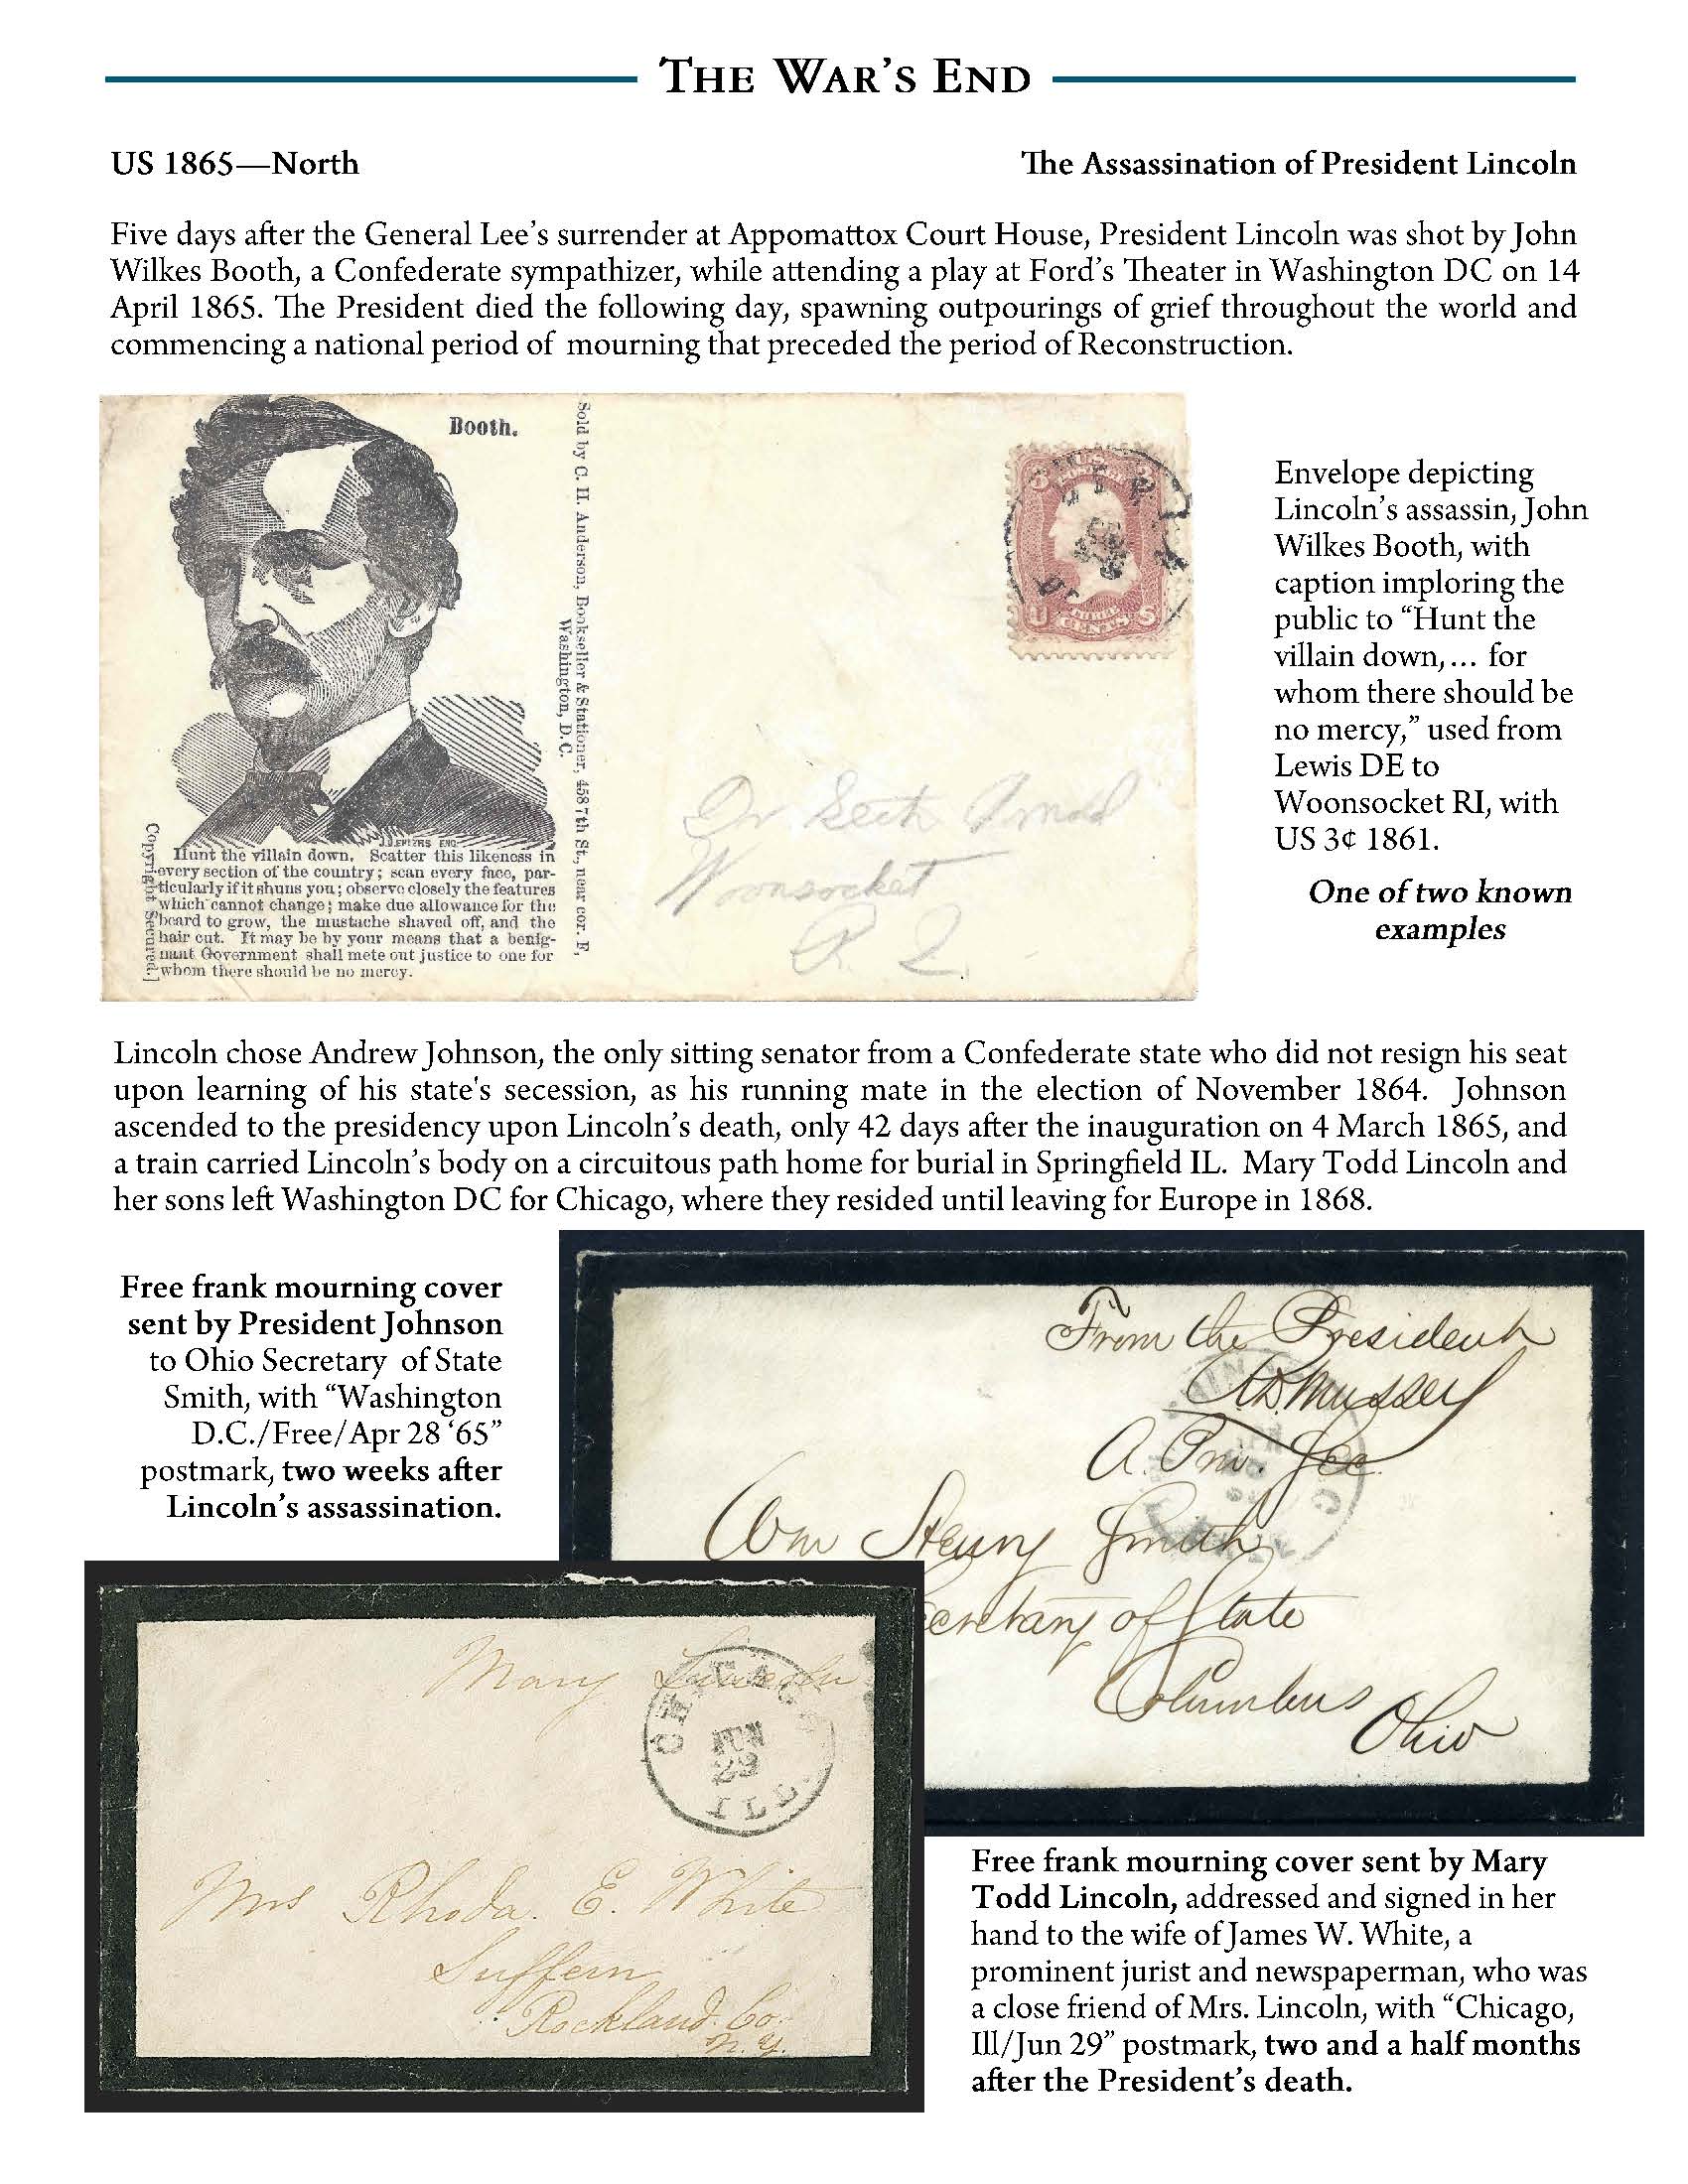 THE WAR'S END
US 1865—North
The Assassination of President Lincoln
Five days after the General Lee's surrender at Appomattox Court House, President Lincoln was shot by John
Wilkes Booth, a Confederate sympathizer, while attending a play at Ford's Theater in Washington DC on 14
April 1865. The President died the following day, spawning outpourings of grief throughout the world and
commencing a national period of mourning that preceded the period of Reconstruction.
Booth.
Sold by C. H. Anderson, Bookseller & Stationer, 458 7th St., near cor. F,
Washington, D.C.
Copyright Secured.]
Hunt the villain down. Scatter this likeness in
every section of the country; scan every face, par-
ticularly if it shuns you; observe closely the features
which cannot change; make due allowance for the
beard to grow, the mustache shaved off, and the
hair cut. It may be by your means that a benig-
nant Government shall mete out justice to one for
whom there should be no mercy.
U.S.
3 3
CENTS
U S
Dr
Woonsocket
R. I.
Envelope depicting
Lincoln's assassin, John
Wilkes Booth, with
caption imploring the
public to “Hunt the
villain down,... for
whom there should be
no mercy,” used from
Lewis DE to
Woonsocket RI, with
US 3¢ 1861.
One of two known
examples
Lincoln chose Andrew Johnson, the only sitting senator from a Confederate state who did not resign his seat
upon learning of his state's secession, as his running mate in the election of November 1864. Johnson
ascended to the presidency upon Lincoln's death, only 42 days after the inauguration on 4 March 1865, and
a train carried Lincoln's body on a circuitous path home for burial in Springfield IL. Mary Todd Lincoln and
her sons left Washington DC for Chicago, where they resided until leaving for Europe in 1868.
Free frank mourning cover
sent by President Johnson
to Ohio Secretary of State
Smith, with “Washington
D.C./Free/Apr 28 ‘65”
postmark, two weeks after
Lincoln's assassination.
From the President
R.D. Mussey
A. Priv. Sec.
Wm Henry Smith
ecretary of State
Columbus
Ohio
Mary Lincoln
CHICAGO
JUN
29
ILL.
Mrs Rhoda. E. White
Suffern
Rockland. Co.
N. Y.
Free frank mourning cover sent by Mary
Todd Lincoln, addressed and signed in her
hand to the wife of James W. White, a
prominent jurist and newspaperman, who was
a close friend of Mrs. Lincoln, with “Chicago,
Ill/Jun 29” postmark, two and a half months
after the President's death.